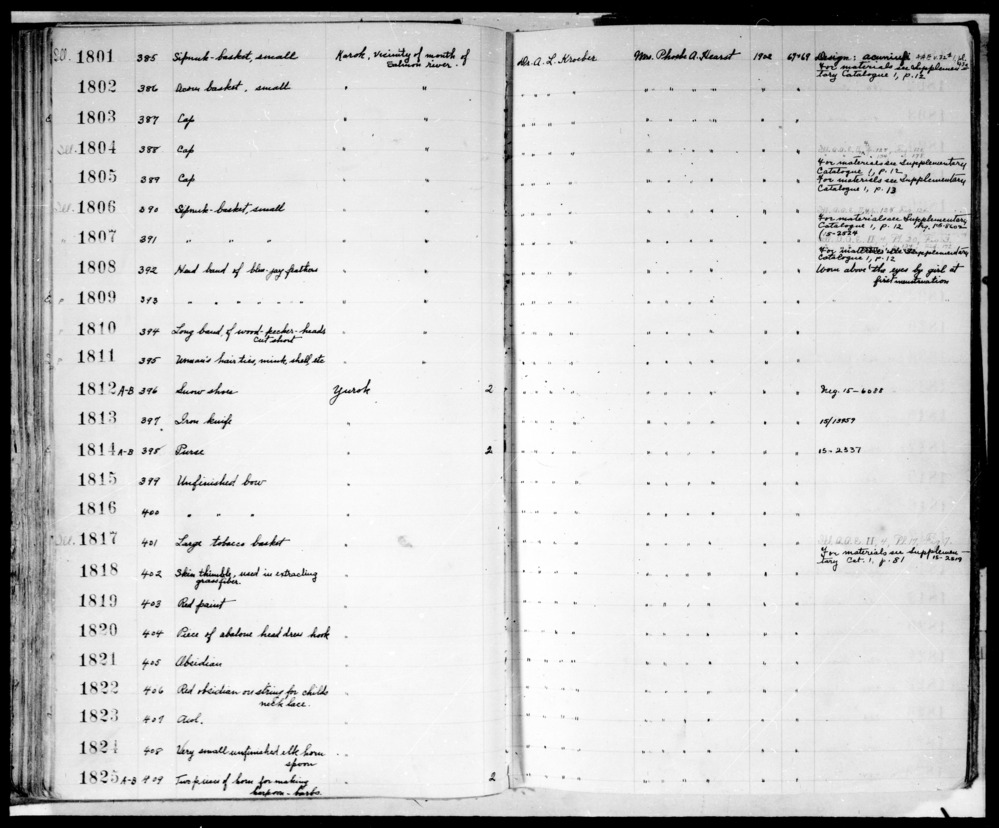 S.U. 1801 385 Sipnuk-basket, small Karok, Vicinity of mouth of Salmon river. Dr. A. L. Kroeber Mrs. Phoebe A. Hearst 1902 67+69 Design:
For materials see Supplementary Catalogue 1, p. 12
1802 386 Acorn basket, small " " " " " " " " " " "
1803 387 Cap " " " " " " " " " " "
S.U. 1804 388 Cap " " " " " " " " " " "
For materials see Supplementary
Catalogue 1, p. 12
1805 389 Cap " " " " " " " " " " " For materials see Supplementary
Catalogue 1, p. 13
S.U. 1806 390 Sipnuk-basket, small " " " " " " " " " " "
For materials see Supplementary
Catalogue 1, p. 12
1807 391 " " " " " " " " " " " " " " (15-2524
For materials see Supplementary
Catalogue 1, p. 12
1808 392 Head band of blue-jay feathers " " " " " " " " " " " Worn above the eyes by girl at
first menstruation
1809 393 " " " " " " " " " " " " " " " " "
1810 394 Long band, of wood-pecker-heads " " " " " " " " " " "
cut short
1811 395 Woman's hair ties, mink, shell, etc " " " " " " " " " " "
1812 A-B 396 Snow shoes Yurok 2 " " " " " " " " " " Neg. 15-6088
1813 397 Iron knife " " " " " " " " " " 15/13959
1814 A-B 398 Purse " 2 " " " " " " " " " 15-2537
1815 399 Unfinished bow " " " " " " " " " "
1816 400 " " " " " " " " " " " "
S.U. 1817 401 Large tobacco basket " " " " " " " " " "
For materials see Supplemen-
tary Cat. 1, p. 81
1818 402 Skin thimble, used in extracting " " " " " " " " " "
grass fiber.
1819 403 Red paint " " " " " " " " " "
1820 404 Piece of abalone head dress hook " " " " " " " " " "
1821 405 Obsidian " " " " " " " " " "
1822 406 Red obsidian on string for childs " " " " " " " " " "
necklace.
1823 407 Awl. " " " " " " " " " "
1824 408 Very small unfinished elk horn " " " " " " " " " "
spoon
1825 A-B 409 Two pieces of horn for making 2 " " " " " " " " "
harpoon-barbs.